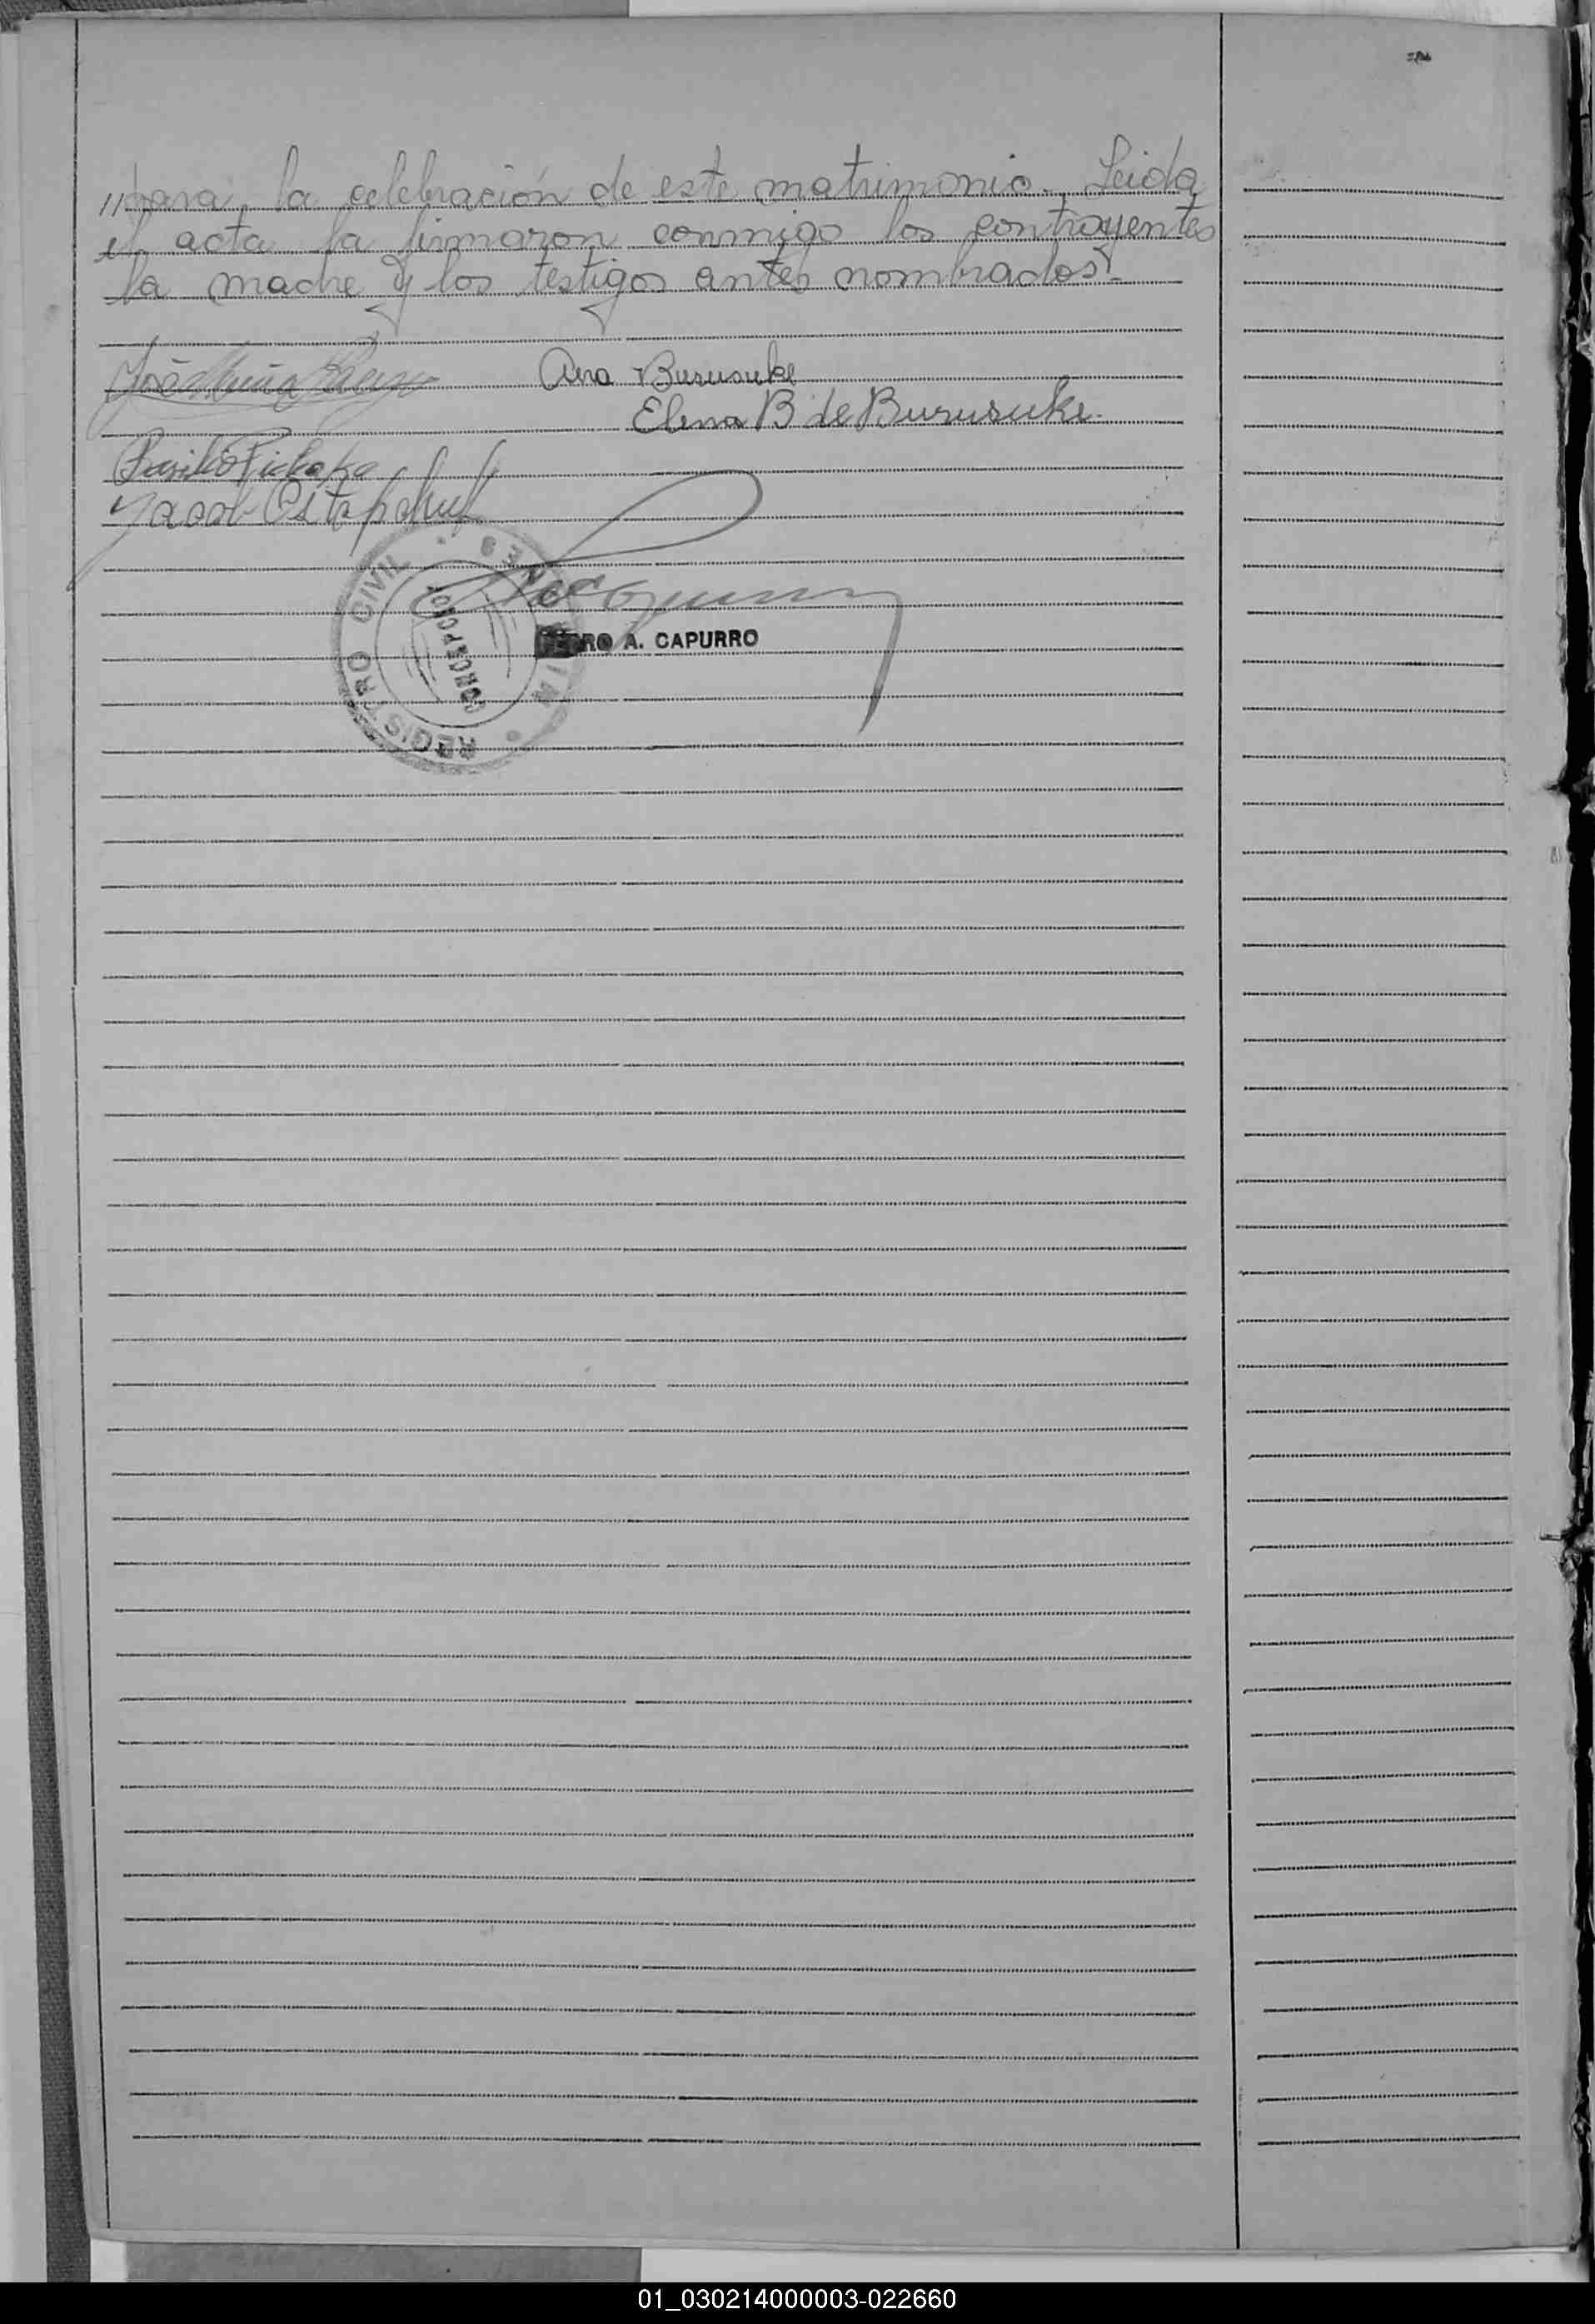 "para la celebración de este matrimonio. Leida
el acta la firmaron conmigo los contrayentes
la madre y los testigos antes nombrados.-
José Ana Burusuke
Elena B de Burusuke.
Basilio
Jacob Ostapchuk
REGISTRO CIVIL • MISIONES •
CONCEPCION
PEDRO A. CAPURRO
01_030214000003-022660